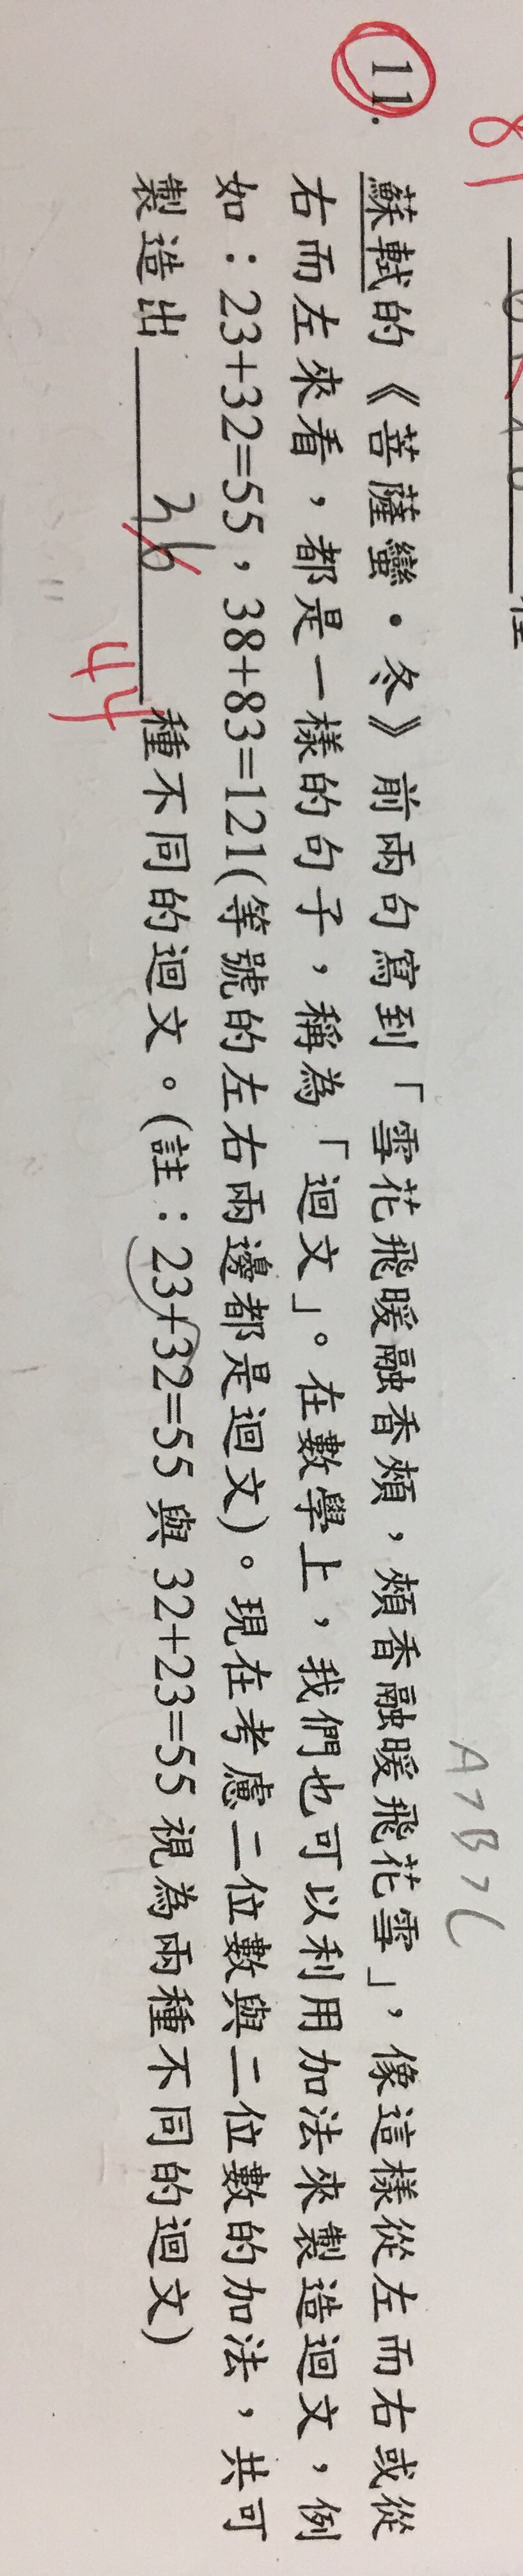 11.
蘇軾的《菩薩蠻·冬》前兩句寫到「雪花飛暖融香頰，頰香融暖飛花雪」，像這樣從左而右或從
右而左來看，都是一樣的句子，稱為「迴文」。在數學上，我們也可以利用加法來製造迴文，例
如：23+32=55，38+83=121(等號的左右兩邊都是迴文)。現在考慮二位數與二位數的加法，共可
製造出 36 44 種不同的迴文。(註：23+32=55 與 32+23=55 視為兩種不同的迴文)
A>B>C